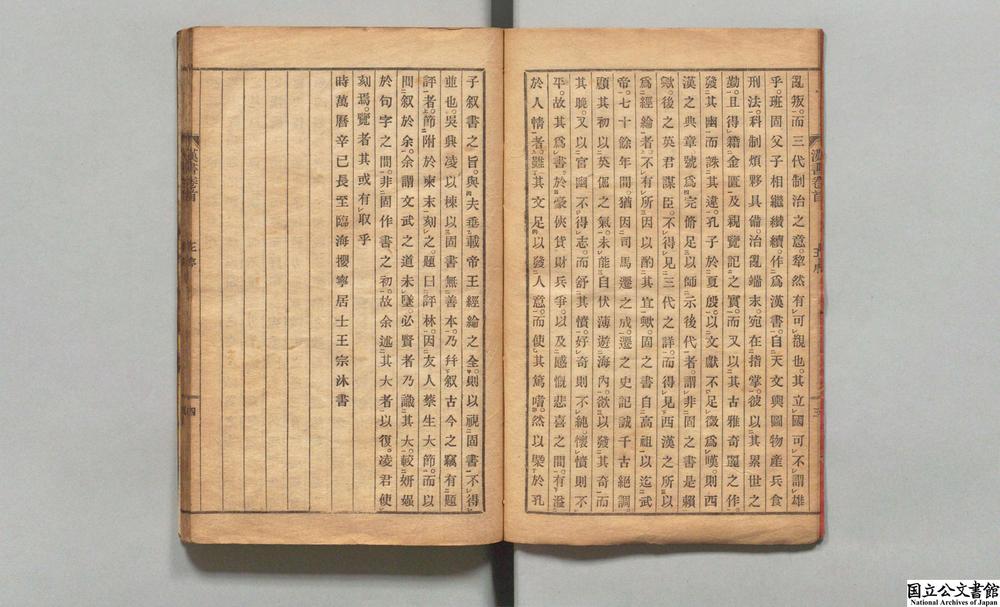 亂叛。而三代制治之意。犂然有可觀也。其立國可不謂雄
乎。班固父子相繼纘續。作爲漢書。自天文輿圖物產兵食
刑法。科制煩夥具備。治亂端末。宛在指掌。彼以其累世之
勤。且得籍金匱及親覽記之實。而又以其古雅奇麗之作。
發其幽而誅其違。孔子於夏殷。以文獻不足徵爲嘆。則西
漢之典章號爲完脩足以師示後代者。謂非固之書是賴
歟。後之英君謀臣。不得見三代之詳。而得見西漢之所以
爲經綸者。不有所因以酌其宜歟。固之書自高祖以迄武
帝。七十餘年間。猶因司馬遷之成。遷之史記誠千古絕調
顧其初以英偘之氣。未能自伏薄遊海內。欲以發其奇而
其晚。又以官幽不得志。而舒其憤。好奇則不純懷憤則不
平。故其爲書。於豪俠貨財兵爭。以及感慨悲喜之間。有溢
於人情者。雖其文足以發人意。而使其篤嗜。然以槩於孔
子叙書之旨。與夫垂載帝王經綸之全。則以視固書不得
並也。吳興凌以棟以固書無善本。乃幷叙古今之竊有題
評者。節附於柬末刻之。題曰評林。因友人蔡生大節。而以
間叙於余。余謂文武之道未墜。必賢者乃識其大。較妍媸
於句字之間。非固作書之初。故余述其大者以復。凌君使
刻焉。覽者其或有取乎
時萬曆辛巳長至臨海攖寧居士王宗沐書
漢書卷首
王序
三
四
国立公文書館
National Archives of Japan